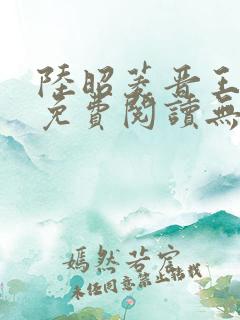 陸昭菱晋王
免費閱讀無
嫣然若宏
未經同意禁止轉載